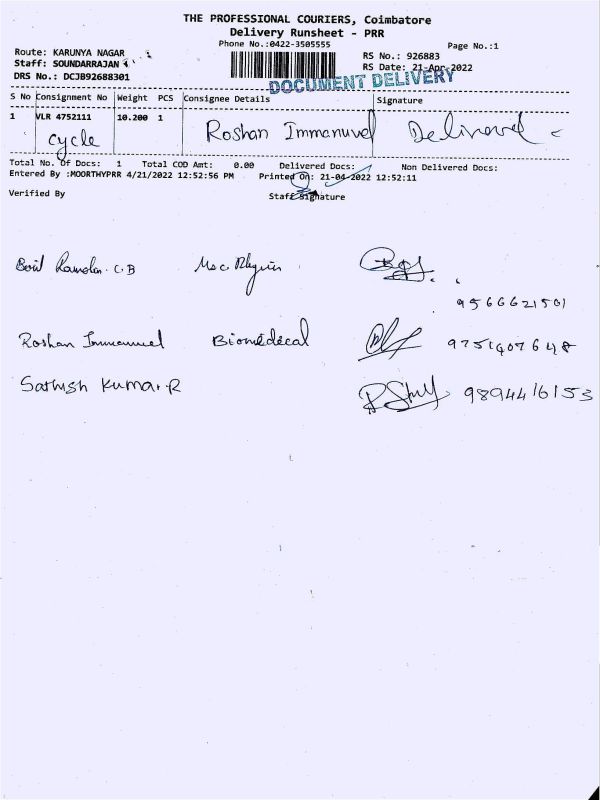 THE PROFESSIONAL COURIERS, Coimbatore
Delivery Runsheet - PRR
Phone No.:0422-3505555
Page No.:1
Route: KARUNYA NAGAR
RS No.: 926883
Staff: SOUNDARRAJAN
RS Date: 21-Apr-2022
DRS No.: DCJB92688301
DOCUMENT DELIVERY
S No Consignment No Weight PCS Consignee Details Signature
1 VLR 4752111 10.200 1 Roshan Immanuvel Delivered
cycle
Total No. Of Docs: 1 Total COD Amt: 0.00 Delivered Docs: Non Delivered Docs:
Entered By :MOORTHYPRR 4/21/2022 12:52:56 PM Printed On: 21-04-2022 12:52:11
Verified By Staff Signature
C.B Msc
9566621501
Roshan Immanuel Biomedecal 9751407648
Sathish Kumar.R 9894416153